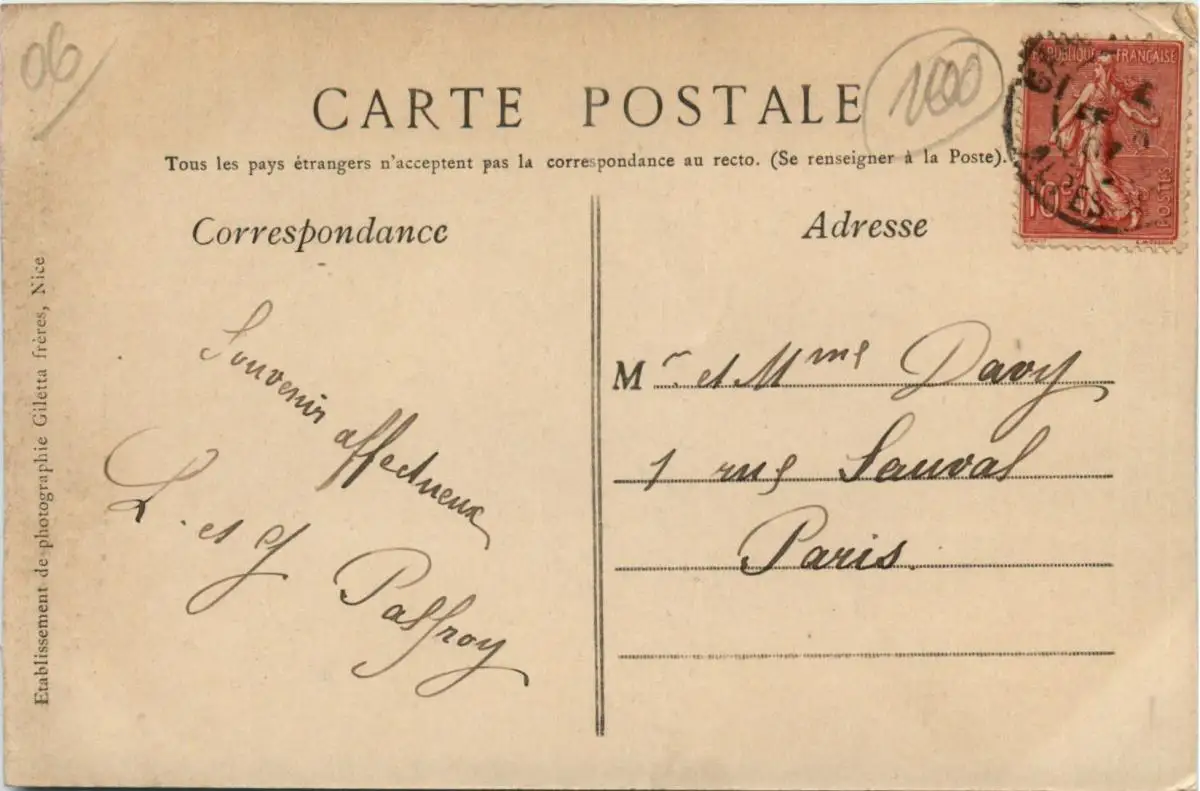 06
CARTE POSTALE
100
Tous les pays étrangers n'acceptent pas la correspondance au recto. (Se renseigner à la Poste).
RÉPUBLIQUE FRANÇAISE
10c
POSTES
ALPES
Correspondance
Souvenir affectueux
L. et J Palfroy
Adresse
Mr et Mme Davy
1 rue Sauval
Paris.
Etablissement de photographie Giletta frères, Nice